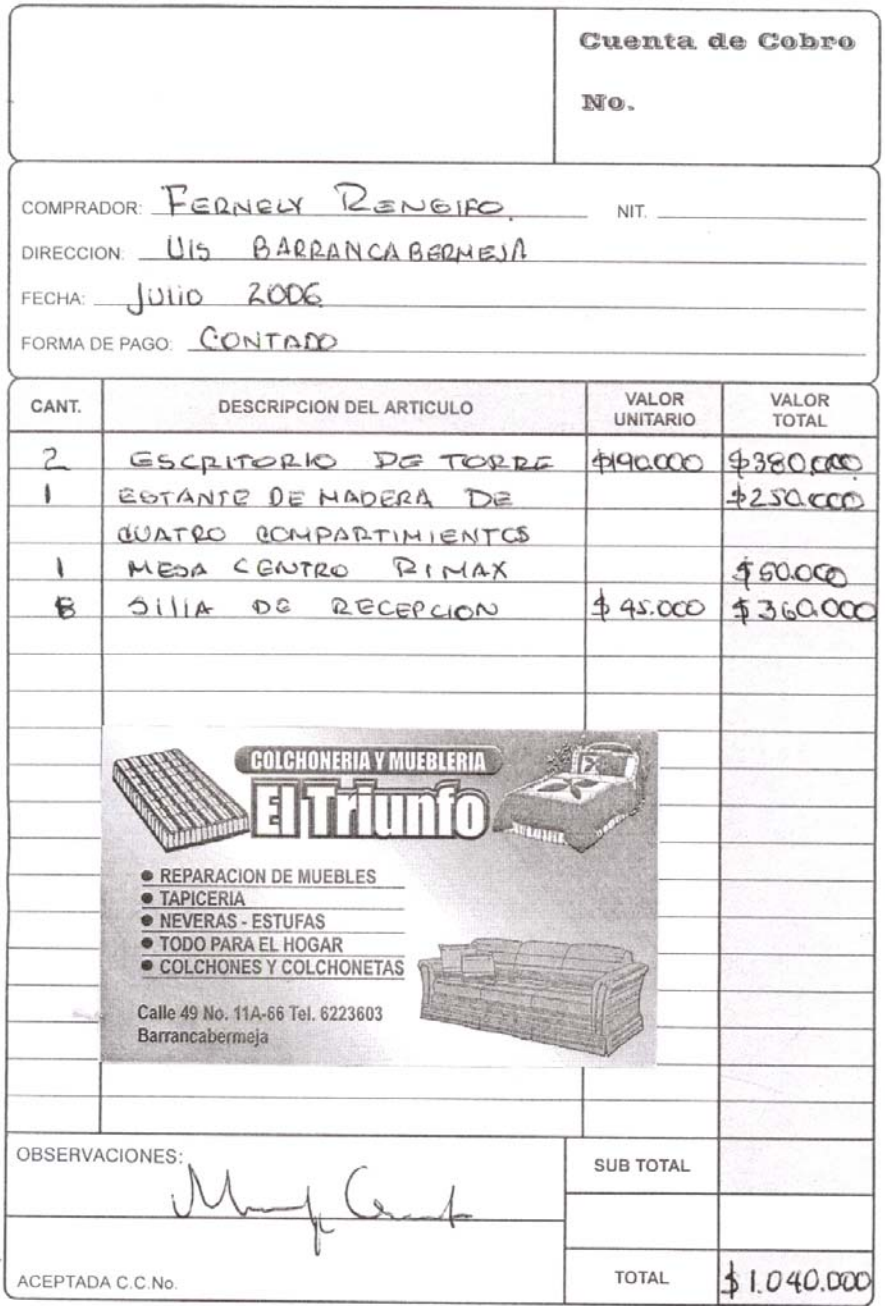 Cuenta de Cobro
No.
COMPRADOR: FERNELY RENGIFO. NIT.
DIRECCION: UIS BARRANCABERMEJA
FECHA: JULIO 2006
FORMA DE PAGO: CONTADO
CANT. DESCRIPCION DEL ARTICULO VALOR UNITARIO VALOR TOTAL
2 ESCRITORIO DE TORRE $190.000 $380.000
1 ESTANTE DE MADERA DE $250.000
CUATRO COMPARTIMIENTOS
1 MESA CENTRO RIMAX $50.000
8 SILLA DE RECEPCION $45.000 $360.000
COLCHONERIA Y MUEBLERIA
El Triunfo
● REPARACION DE MUEBLES
● TAPICERIA
● NEVERAS - ESTUFAS
● TODO PARA EL HOGAR
● COLCHONES Y COLCHONETAS
Calle 49 No. 11A-66 Tel. 6223603
Barrancabermeja
OBSERVACIONES:
SUB TOTAL
ACEPTADA C.C.No.
TOTAL $1.040.000